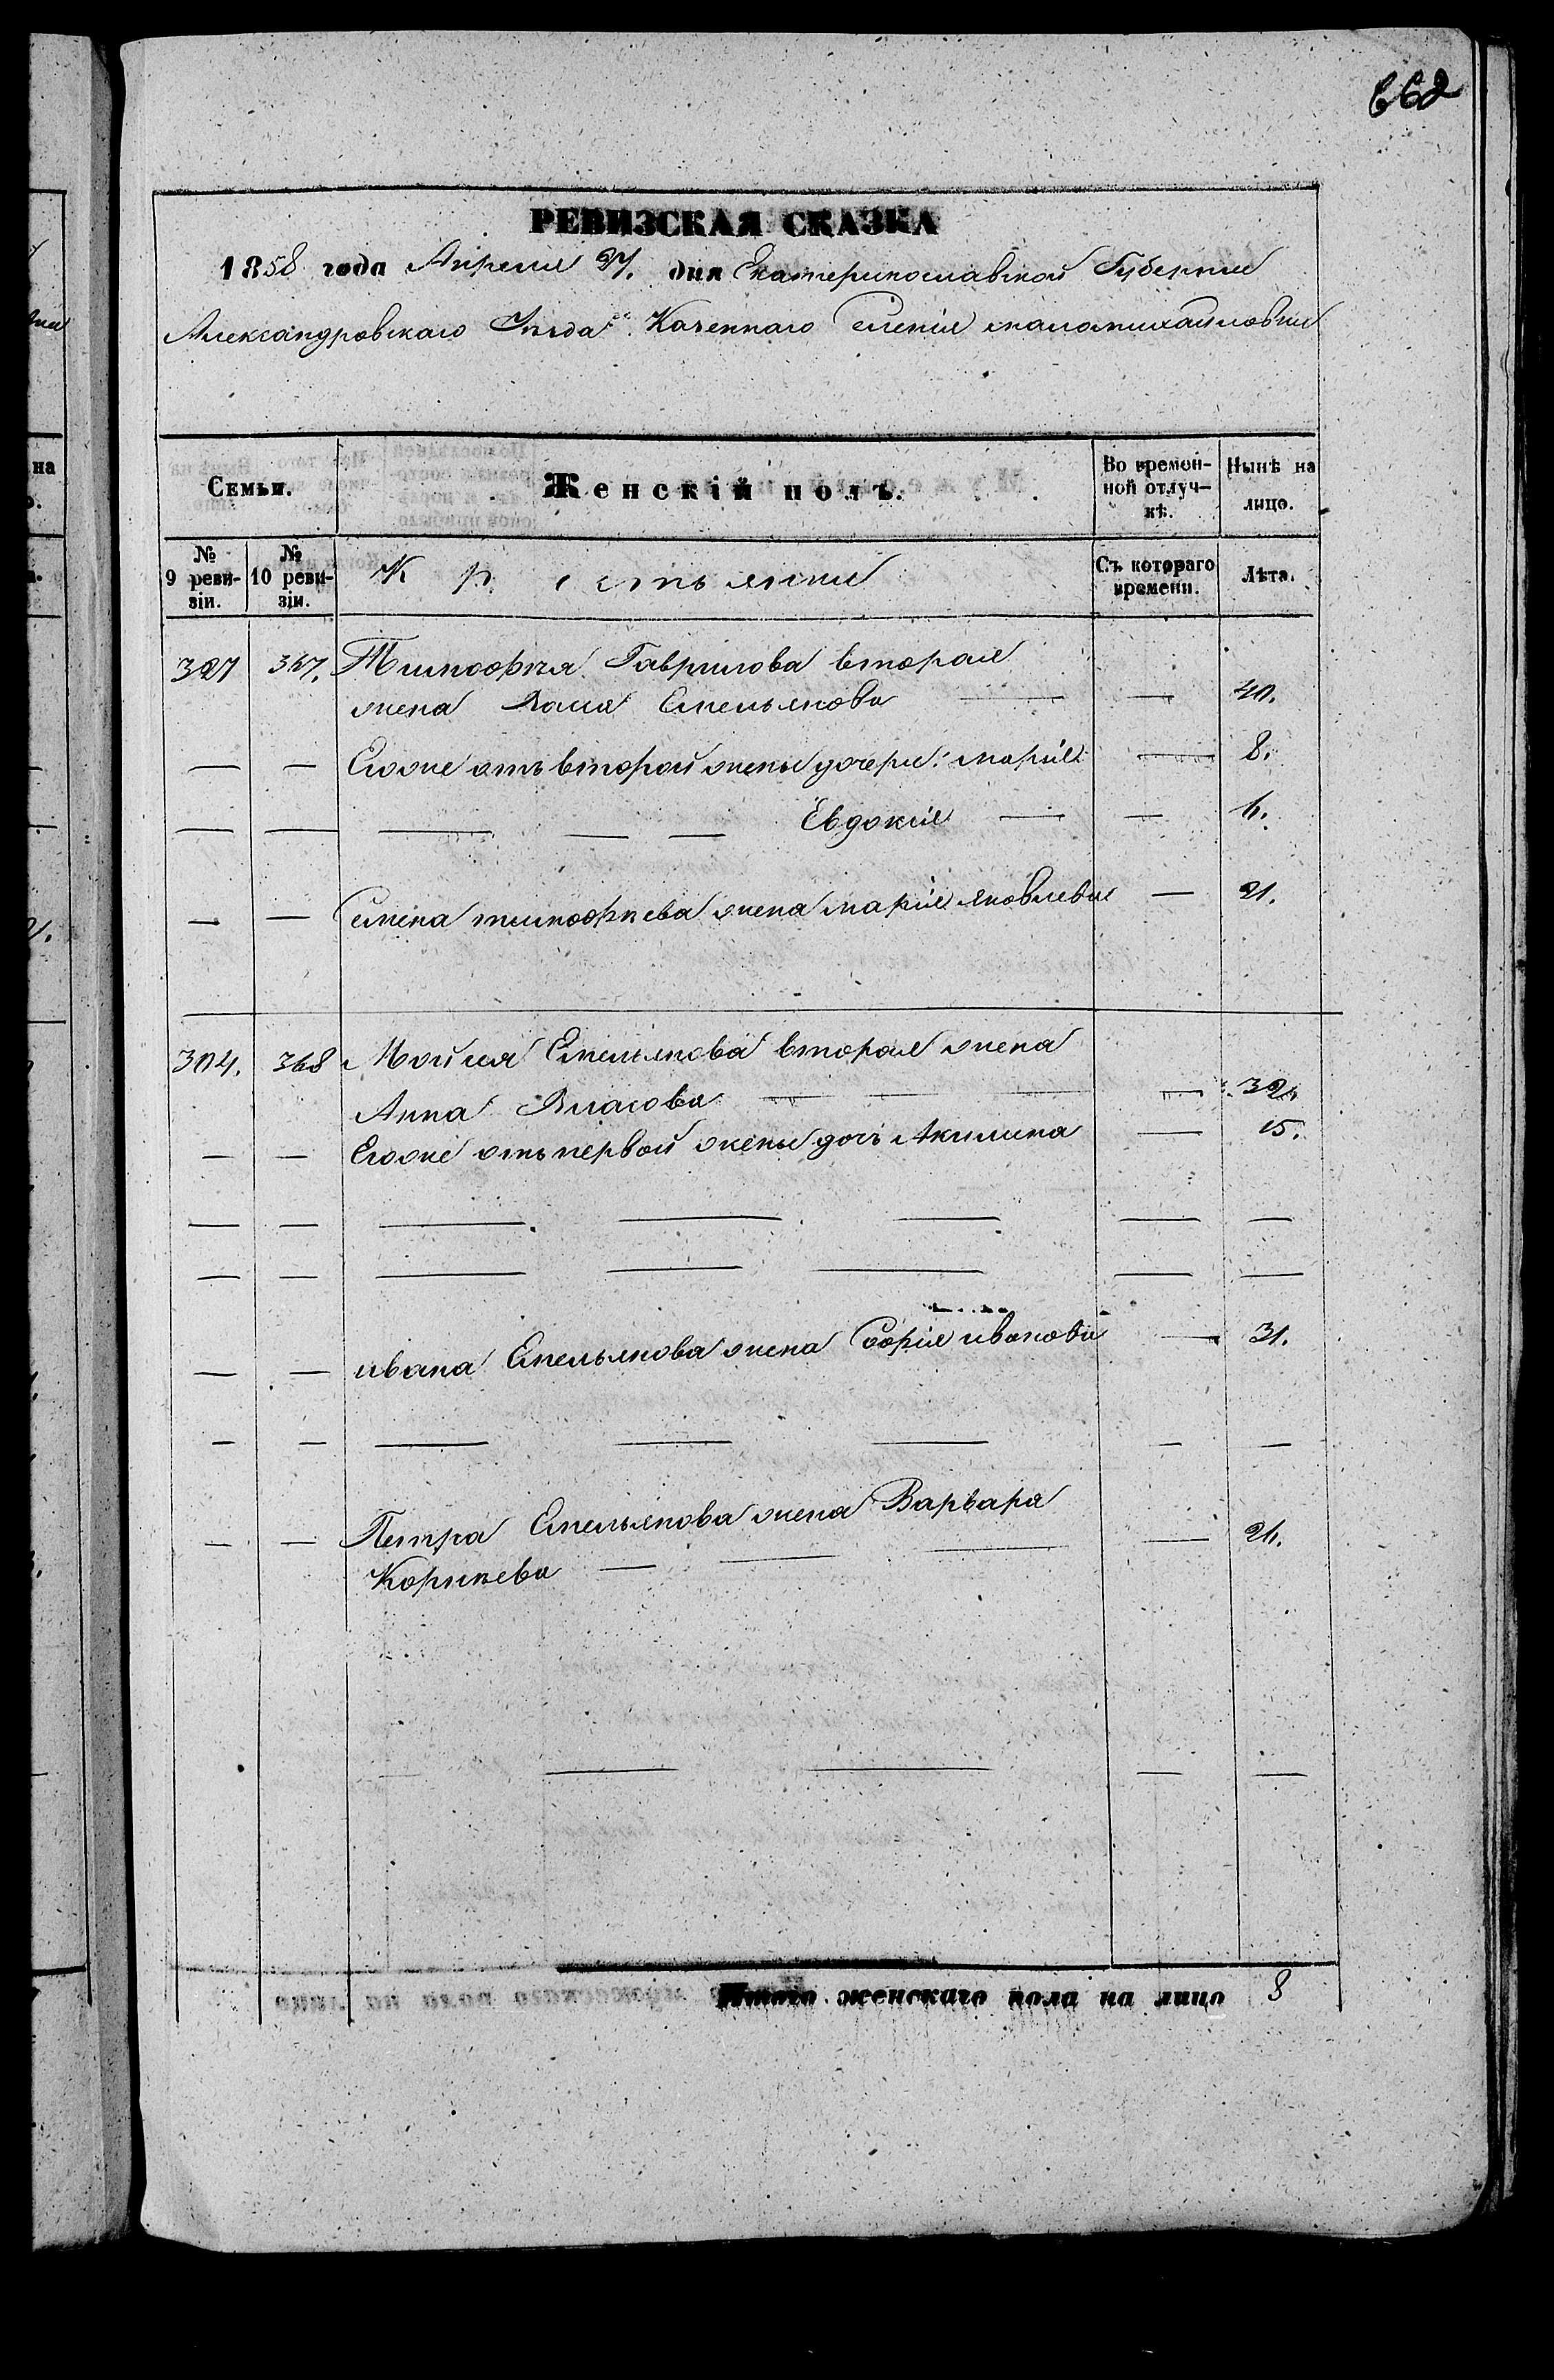 662
РЕВИЗСКАЯ СКАЗКА
1858 года Апреля 27. дня Екатеринославской Губернии
Александровскаго Уезда Казеннаго Селенія маломихайловки
Семьи. Женскій полъ. Во времен-ной отлуч-кѣ. Нынѣ на лицо.
№ 9 реви-зіи. № 10 реви-зіи. Крестьяне Съ котораго времени. Лѣта.
327 367. Тимофѣя Гаврилова вторая
жена Емельянова — — 40.
— — Егоже отъ второй жены дочери: марія — 8.
— — — — — Евдокія — — 6.
— — Семена тимофѣева жена марія яковлева — 21.
304. 368 Мойсея Емельянова вторая жена
Анна Власова — — — — 32.
— — Егоже отъ первой жены дочь Акилина — 15.
— — — — — — —
— — — — — — —
— — ивана Емельянова жена Софія иванова — 31.
— — — — — — —
— — Петра Емельянова жена Варвара — 26.
Корнѣева — — —
— — — —
Итого женскаго пола на лицо 8